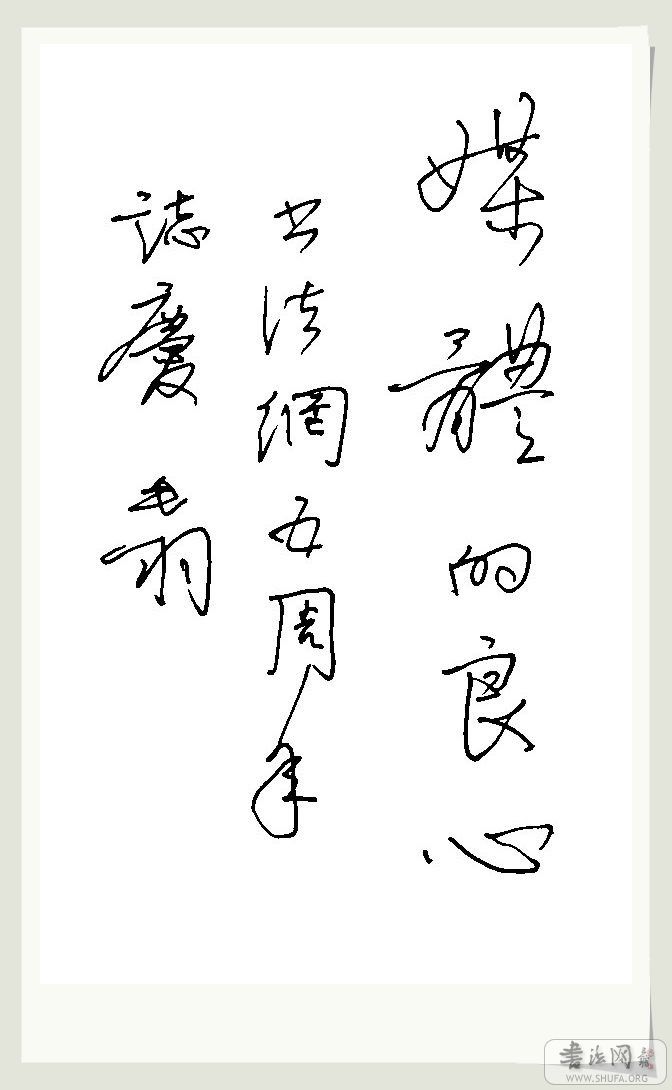 媒體的良心
书法網五周年
誌慶
书法网
WWW.SHUFA.ORG